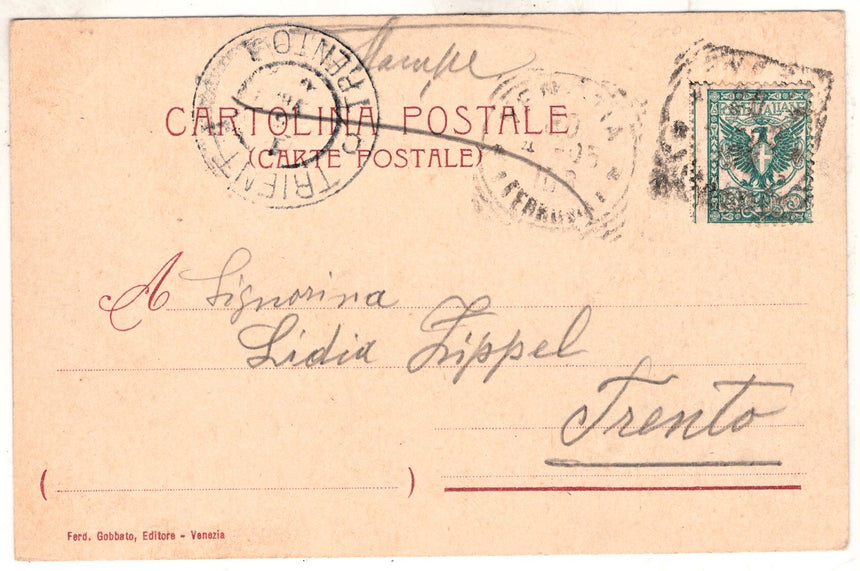 Stampe
CARTOLINA POSTALE
(CARTE POSTALE)
TRIENT TRENTO
VENEZIA
(FERROVIA)
POSTE ITALIANE
A Signorina
Lidia Zippel
Trento
( )
Ferd. Gobbato, Editore - Venezia